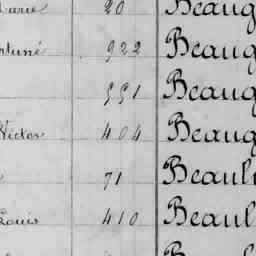 Marie 20 Beaug
ortuné 922 Beaug
551 Beaug
Victor 404 Beaug
71 Beaul
Louis 410 Beaul